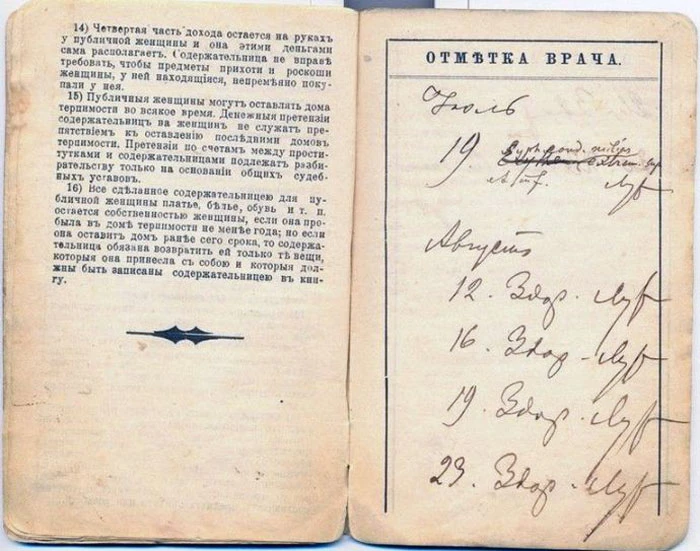 14) Четвертая часть дохода остается на рукахъ
у публичной женщины и она этими деньгами
сама располагаетъ. Содержательница не вправѣ
требовать, чтобы предметы прихоти и роскоши
женщины, у ней находящiяся, непремѣнно поку-
пали у нея.
15) Публичныя женщины могутъ оставлять дома
терпимости во всякое время. Денежныя претензiи
содержательницъ на женщинъ не служатъ пре-
пятствiемъ къ оставленiю послѣднихъ домовъ
терпимости. Претензiи по счетамъ между прости-
тутками и содержательницами подлежатъ разби-
рательству только на основанiи общихъ судеб-
ныхъ уставовъ.
16) Все сдѣланное содержательницею для пу-
бличной женщины платье, бѣлье, обувь и т. п.
остается собственностью женщины, если она про-
была въ домѣ терпимости не менѣе года; но если
она оставитъ домъ ранѣе сего срока, то содержа-
тельница обязана возвратить ей только тѣ вещи,
которыя она принесла съ собою и которыя дол-
жны быть записаны содержательницею въ кни-
гу.
ОТМѢТКА ВРАЧА.
Iюль
19
Августъ
12. Здор.
16. Здор.
19. Здор.
23. Здор.